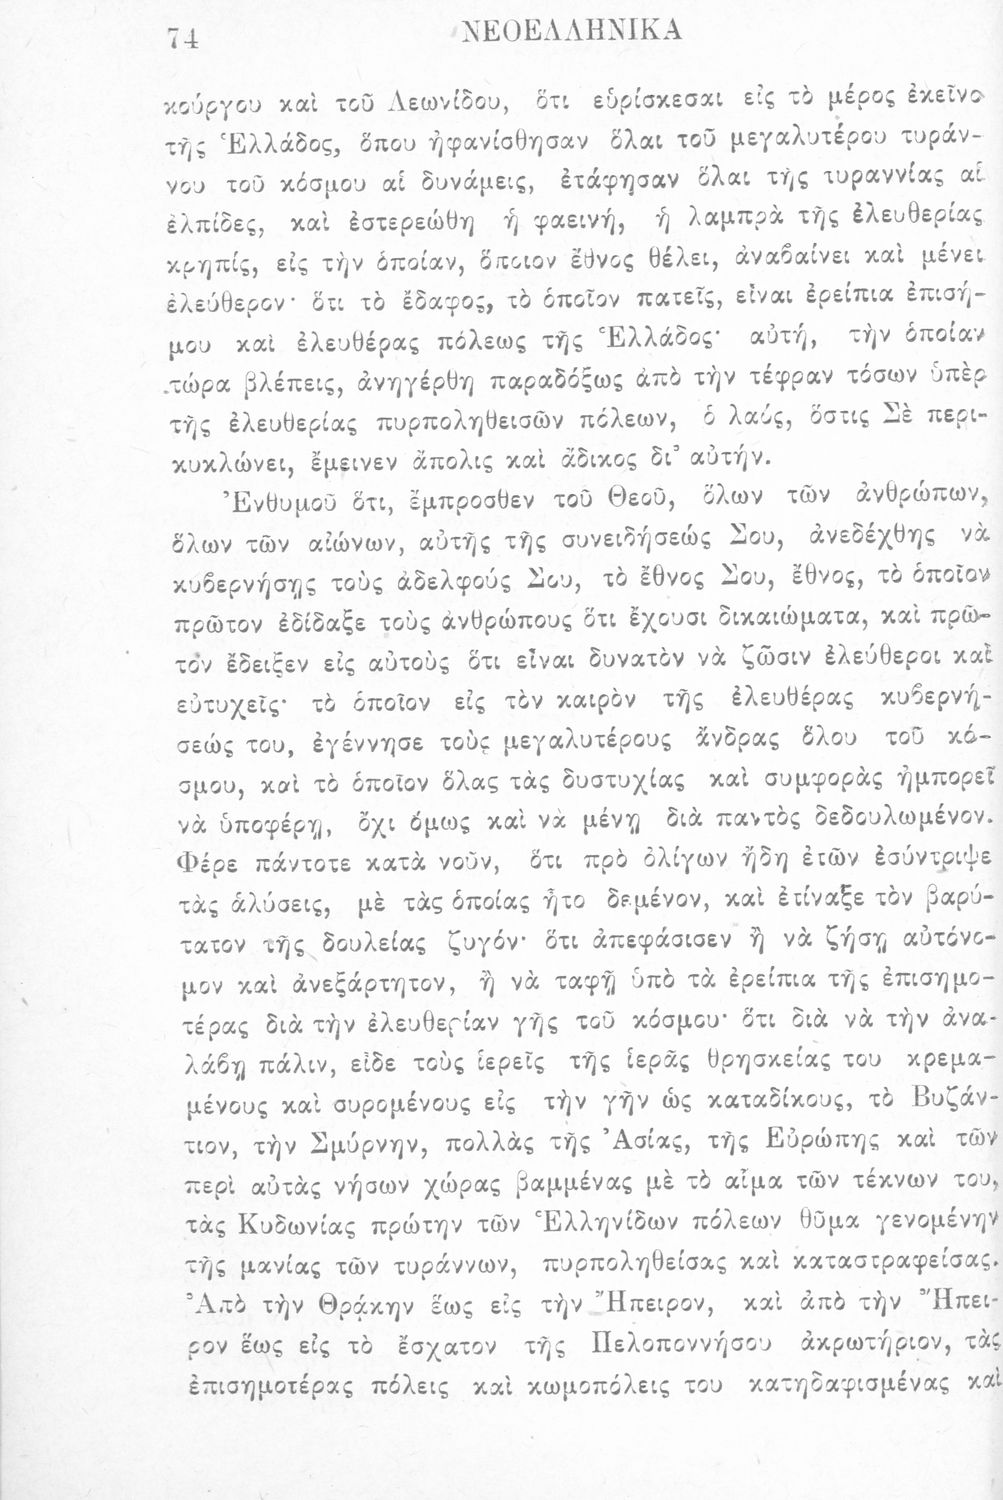 74 ΝΕΟΕΛΛΗΝΙΚΑ
κούργου καὶ τοῦ Λεωνίδου, ὅτι εὑρίσκεσαι εἰς τὸ μέρος ἐκεῖνο
τῆς Ἑλλάδος, ὅπου ἠφανίσθησαν ὅλαι τοῦ μεγαλυτέρου τυράν-
νου τοῦ κόσμου αἱ δυνάμεις, ἐτάφησαν ὅλαι τῆς τυραννίας αἱ
ἐλπίδες, καὶ ἐστερεώθη ἡ φαεινή, ἡ λαμπρὰ τῆς ἐλευθερίας
κρηπίς, εἰς τὴν ὁποίαν, ὅποιον ἔθνος θέλει, ἀναβαίνει καὶ μένει
ἐλεύθερον· ὅτι τὸ ἔδαφος, τὸ ὁποῖον πατεῖς, εἶναι ἐρείπια ἐπισή-
μου καὶ ἐλευθέρας πόλεως τῆς Ἑλλάδος· αὐτή, τὴν ὁποίαν
τώρα βλέπεις, ἀνηγέρθη παραδόξως ἀπὸ τὴν τέφραν τόσων ὑπὲρ
τῆς ἐλευθερίας πυρποληθεισῶν πόλεων, ὁ λαός, ὅστις Σὲ περι-
κυκλώνει, ἔμεινεν ἄπολις καὶ ἄοικος δι' αὐτήν.
Ἐνθυμοῦ ὅτι, ἔμπροσθεν τοῦ Θεοῦ, ὅλων τῶν ἀνθρώπων,
ὅλων τῶν αἰώνων, αὐτῆς τῆς συνειδήσεώς Σου, ἀνεδέχθης νὰ
κυβερνήσῃς τοὺς ἀδελφούς Σου, τὸ ἔθνος Σου, ἔθνος, τὸ ὁποῖον
πρῶτον ἐδίδαξε τοὺς ἀνθρώπους ὅτι ἔχουσι δικαιώματα, καὶ πρῶ-
τον ἔδειξεν εἰς αὐτοὺς ὅτι εἶναι δυνατὸν νὰ ζῶσιν ἐλεύθεροι καὶ
εὐτυχεῖς· τὸ ὁποῖον εἰς τὸν καιρὸν τῆς ἐλευθέρας κυβερνή-
σεώς του, ἐγέννησε τοὺς μεγαλυτέρους ἄνδρας ὅλου τοῦ κό-
σμου, καὶ τὸ ὁποῖον ὅλας τὰς δυστυχίας καὶ συμφορὰς ἠμπορεῖ
νὰ ὑποφέρῃ, ὄχι ὅμως καὶ νὰ μένῃ διὰ παντὸς δεδουλωμένον.
Φέρε πάντοτε κατὰ νοῦν, ὅτι πρὸ ὀλίγων ἤδη ἐτῶν ἐσύντριψε
τὰς ἁλύσεις, μὲ τὰς ὁποίας ἦτο δεμένον, καὶ ἐτίναξε τὸν βαρύ-
τατον τῆς δουλείας ζυγόν· ὅτι ἀπεφάσισεν ἢ νὰ ζήσῃ αὐτόνο-
μον καὶ ἀνεξάρτητον, ἢ νὰ ταφῇ ὑπὸ τὰ ἐρείπια τῆς ἐπισημο-
τέρας διὰ τὴν ἐλευθερίαν γῆς τοῦ κόσμου· ὅτι διὰ νὰ τὴν ἀνα-
λάβῃ πάλιν, εἶδε τοὺς ἱερεῖς τῆς ἱερᾶς θρησκείας του κρεμα-
μένους καὶ συρομένους εἰς τὴν γῆν ὡς καταδίκους, τὸ Βυζάν-
τιον, τὴν Σμύρνην, πολλὰς τῆς Ἀσίας, τῆς Εὐρώπης καὶ τῶν
περὶ αὐτὰς νήσων χώρας βαμμένας μὲ τὸ αἷμα τῶν τέκνων του,
τὰς Κυδωνίας πρώτην τῶν Ἑλληνίδων πόλεων θῦμα γενομένην
τῆς μανίας τῶν τυράννων, πυρποληθείσας καὶ καταστραφείσας.
Ἀπὸ τὴν Θρᾴκην ἕως εἰς τὴν Ἤπειρον, καὶ ἀπὸ τὴν Ἤπει-
ρον ἕως εἰς τὸ ἔσχατον τῆς Πελοποννήσου ἀκρωτήριον, τὰς
ἐπισημοτέρας πόλεις καὶ κωμοπόλεις του κατηδαφισμένας καὶ